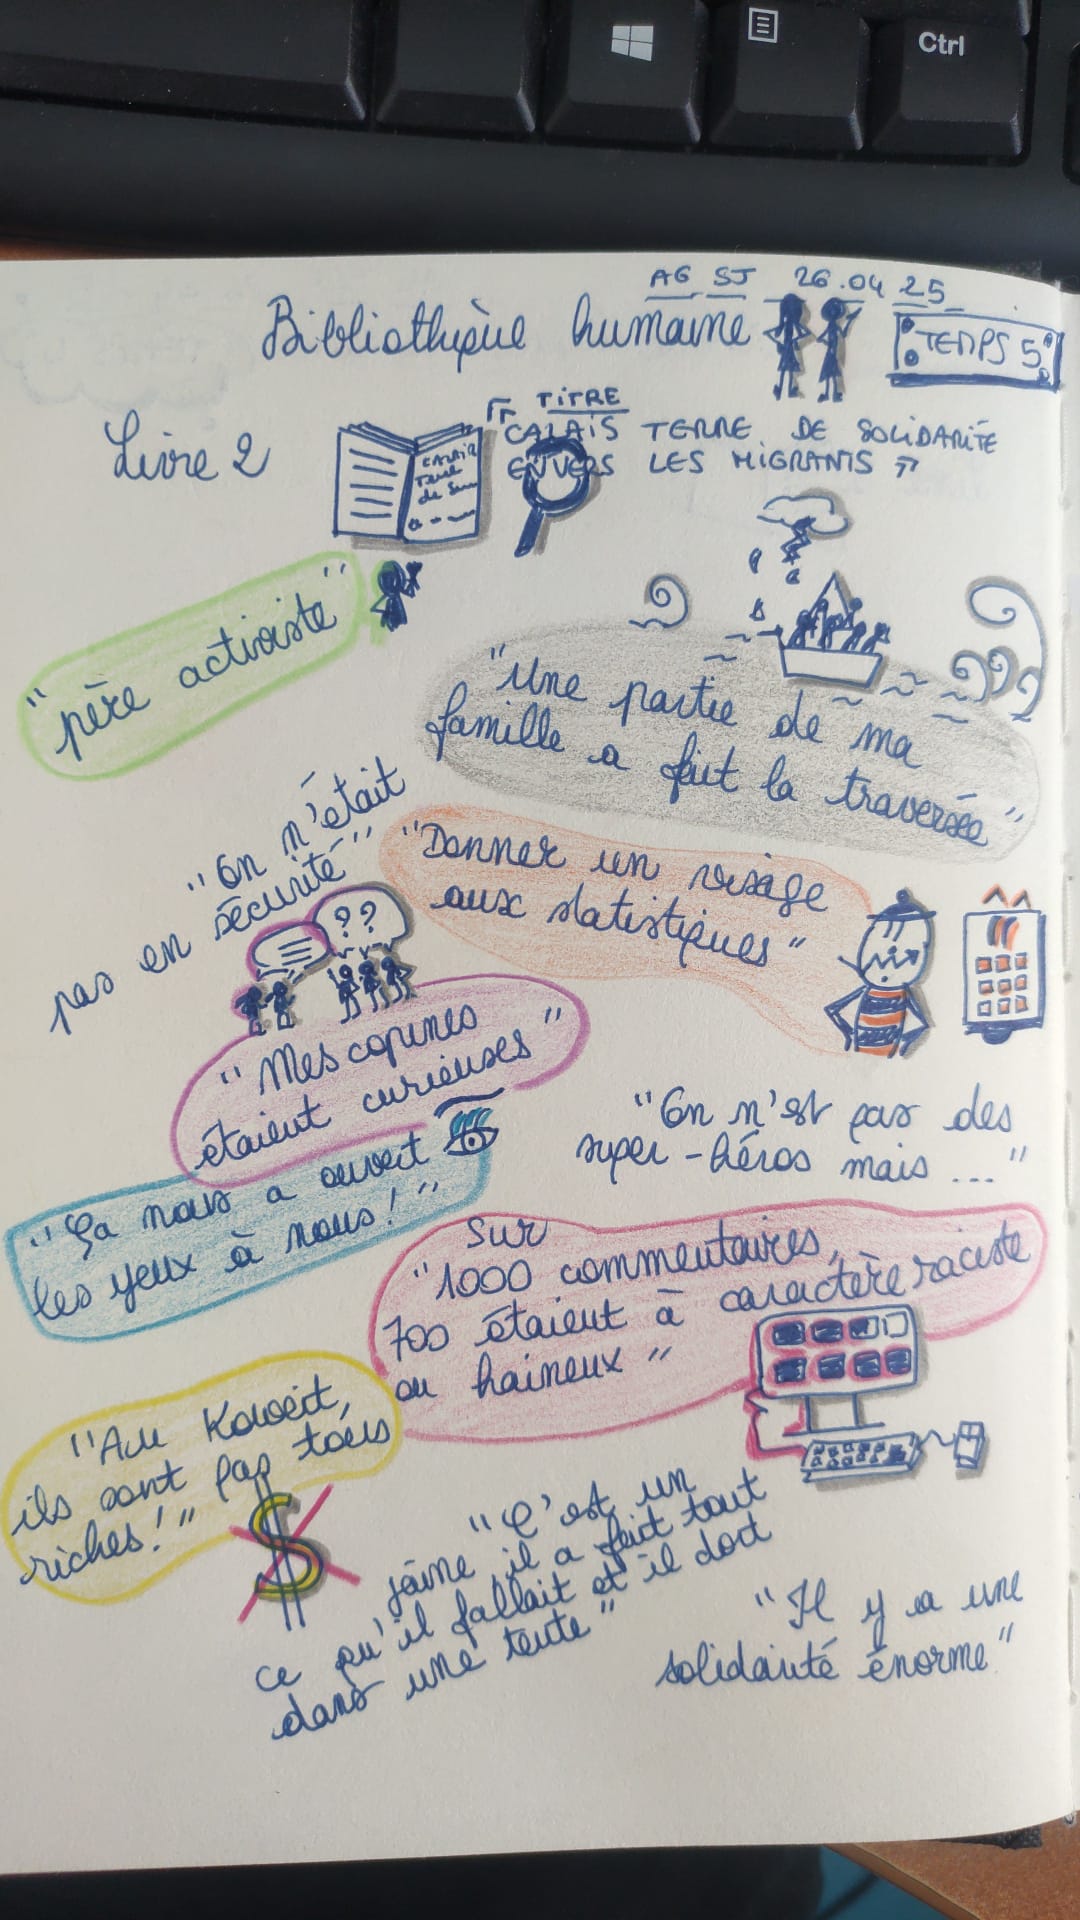 Ctrl
AG SJ 26.04.25
Bibliothèque humaine
TEMPS 5
Livre 2
TITRE
"CALAIS TERRE DE SOLIDARITÉ
ENVERS LES MIGRANTS"
CALAIS
Terre
de
"père activiste"
"Une partie de ma
famille a fait la traversée"
"On n'était
pas en sécurité"
"Donner un visage
aux statistiques"
??
"Mes copines
étaient curieuses"
"On n'est pas des
super-héros mais ..."
"Ça nous a ouvert
les yeux à nous!"
Sur
"1000 commentaires,
700 étaient à caractère raciste
ou haineux"
"Au Koweit,
ils sont pas tous
riches!"
$
"C'est un
jeune, il a fait tout
ce qu'il fallait et il dort
dans une tente"
"Il y a une
solidarité énorme"